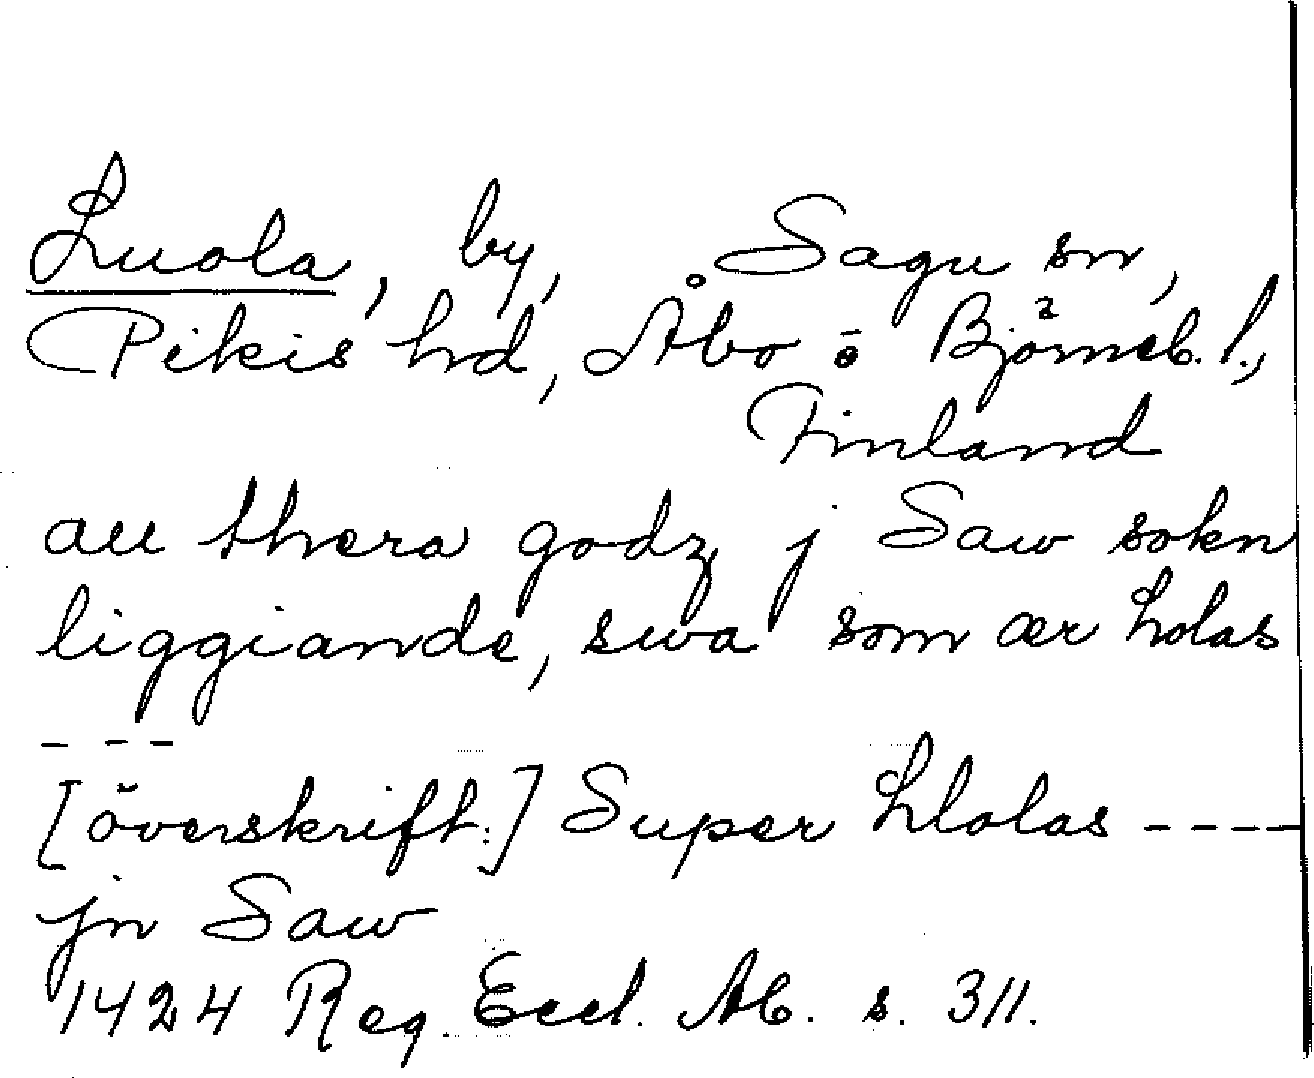 Luola, by, Sagu sn,
Pikis hd, Åbo o Björneb. l.,
Finland
au thera godz j Saw sokn
liggiande, swa som ær Lolas
- - -
[överskrift:] Super Llolas - - - -
jn Saw
1424 Reg. Eccl. Ab. s. 311.